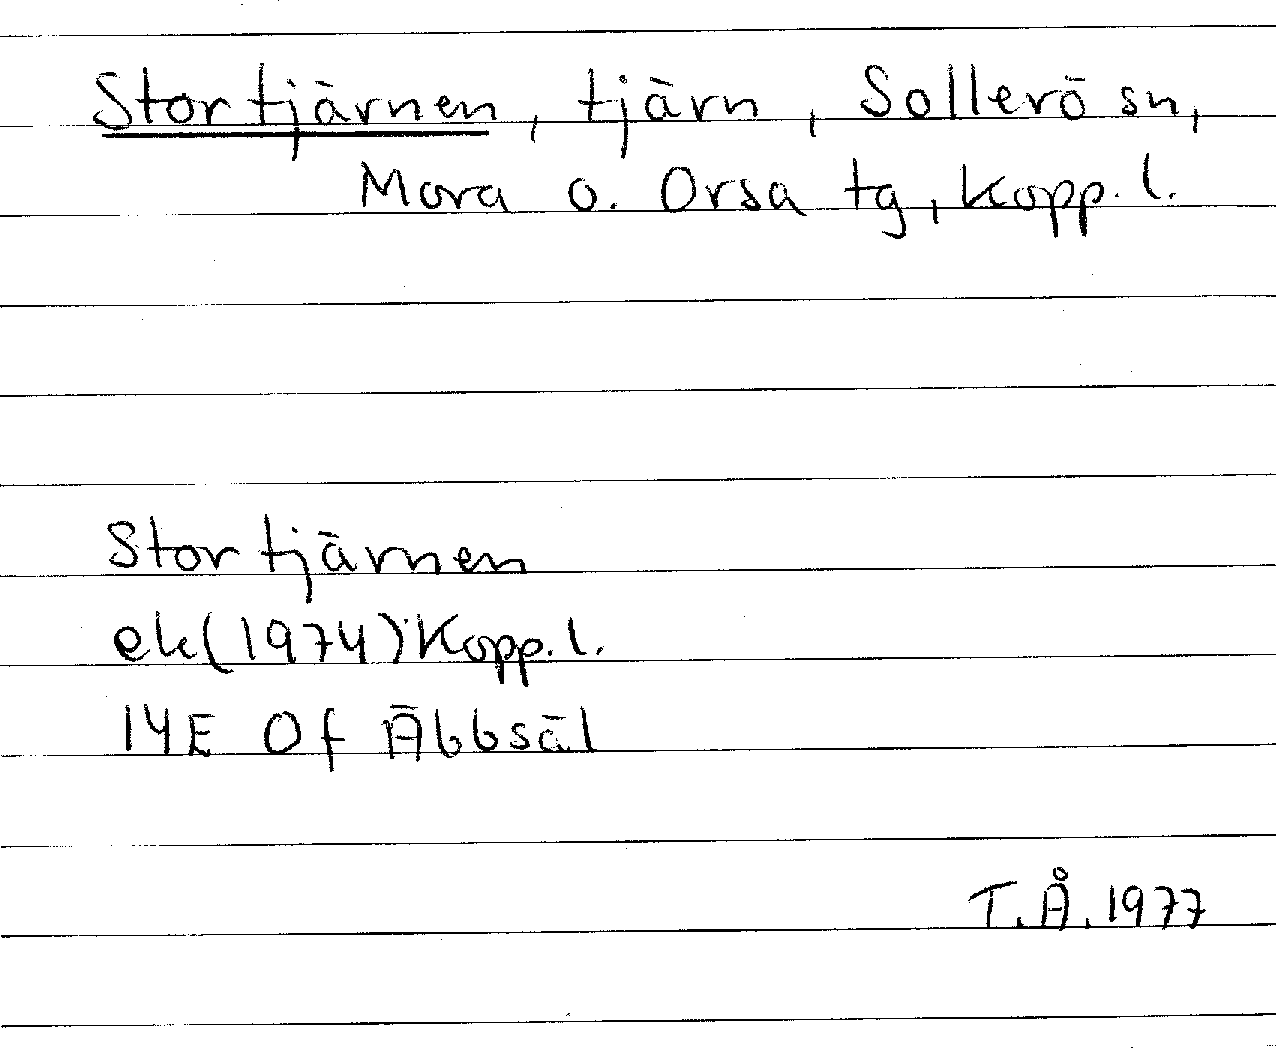 Stortjärnen, tjärn, Sollerö sn,
Mora o. Orsa tg, Kopp. l.
Stortjärnen
ek(1974) Kopp. l.
14E 0f Äbbsäl
T.Å. 1977